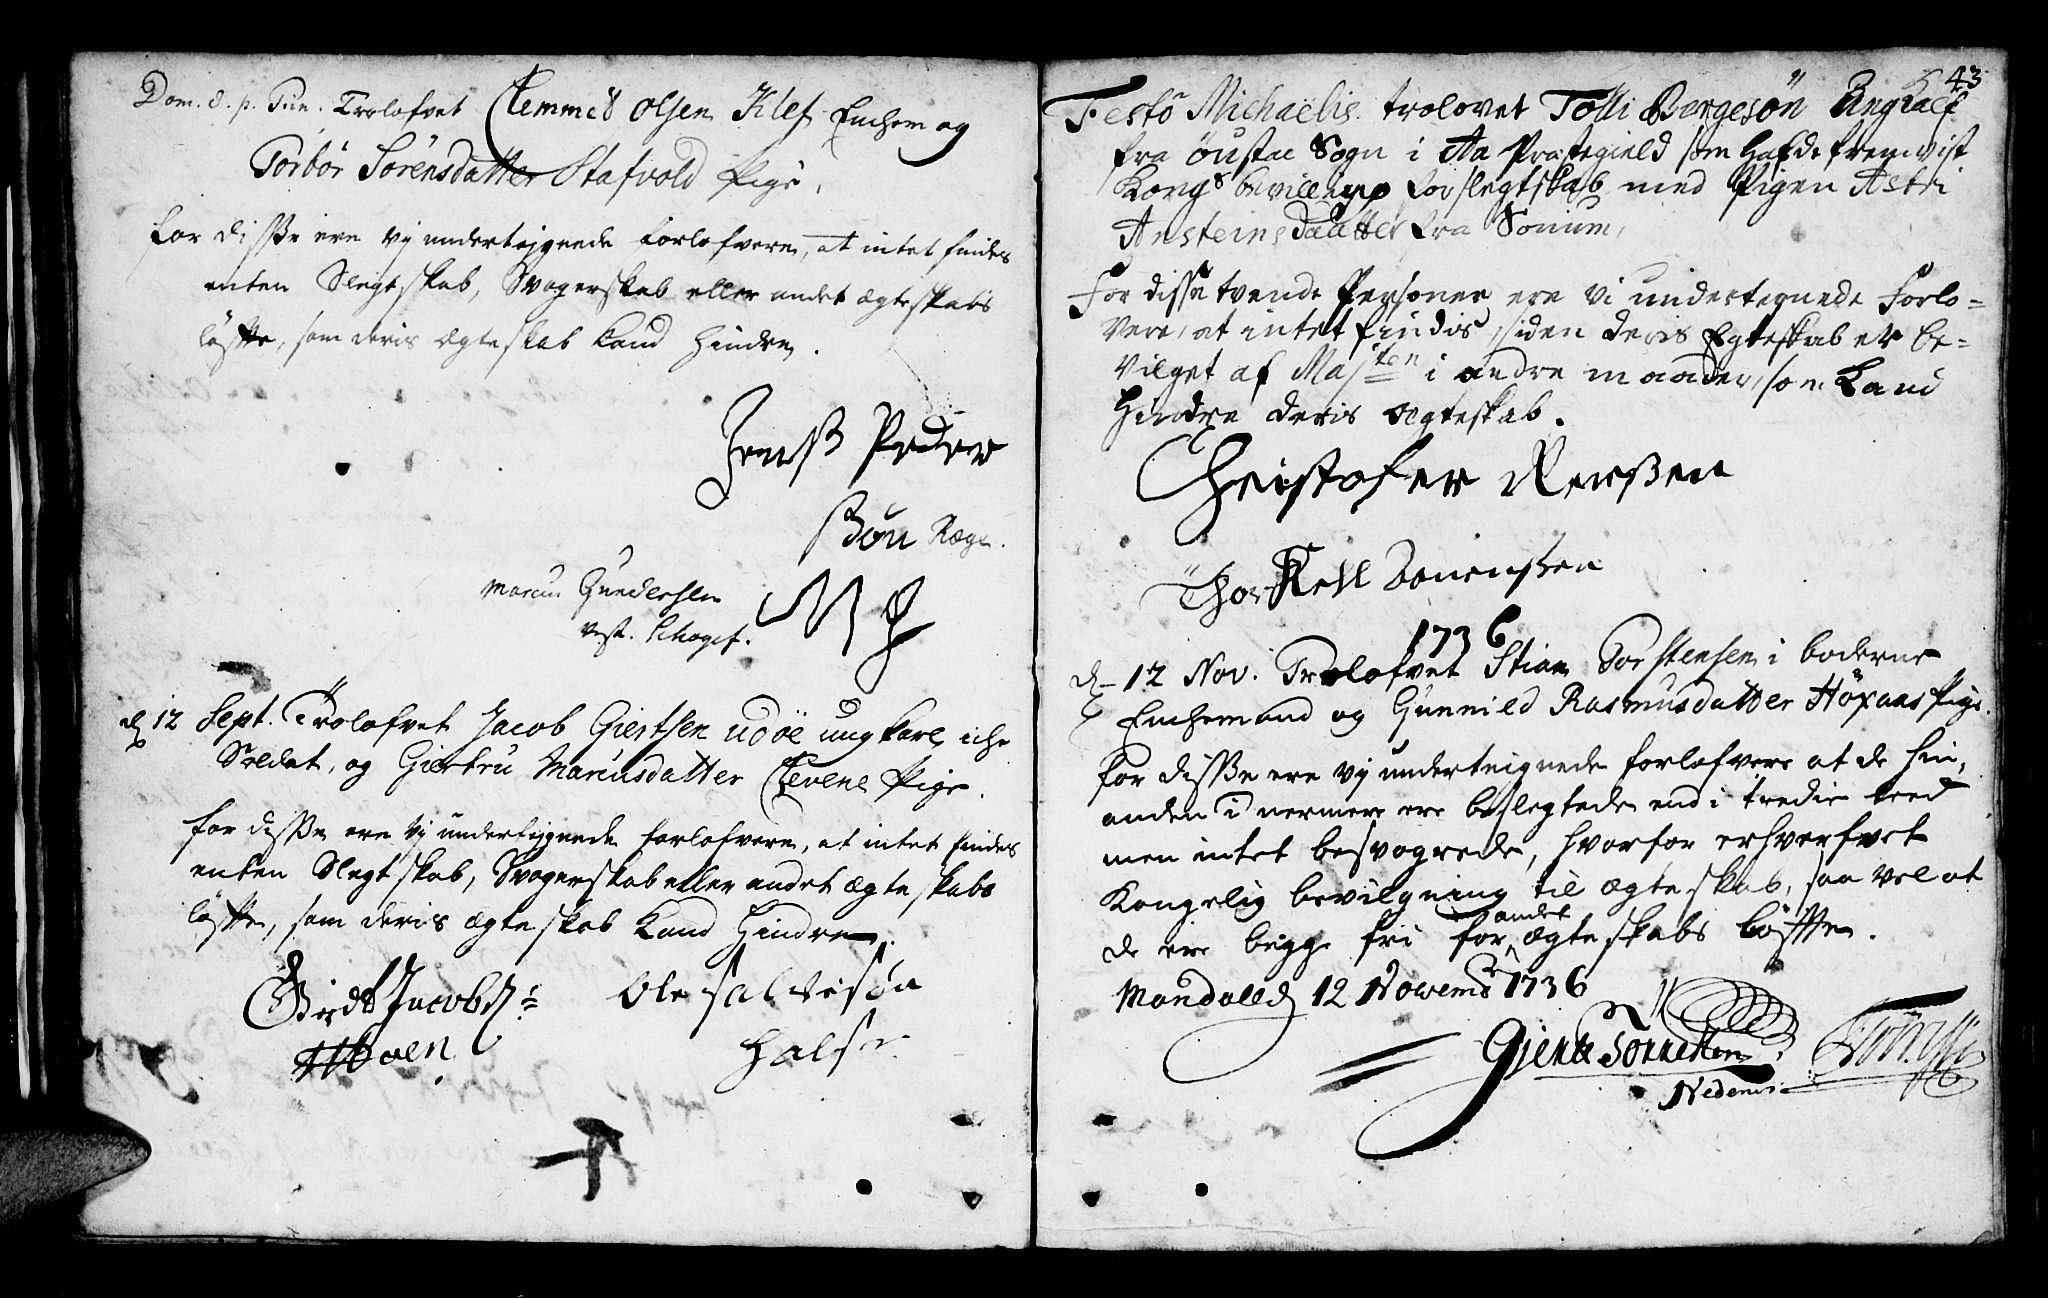 Dom. 8. p. Trin. Trolofvet Clemmed Olsen Klef Enchem og
Torbör Sörensdatter Stafvold Pige.
for disße ere vy undertejgnede forlofvere, at intet findes
enten Slegtskab, Svogerskab eller andet ægteskabs
löffte, som deris ægteskab kand hindre.
Jenß Peder
ßön Rege.
Marcus Gundersen
vest.
d 12 Sept. Trolofvet Jacob Giertsen Udöe ungkarl, iche
Soldat, og Giertru Mariusdatter Clevene Pige.
for disße ere vy undertejgnede forlofvere, at intet findes
enten Slegtskab, Svogerskab eller andet ægteskabs
löffte, som deris ægteskab kand hindre.
Girdt Jacobs:
Ole salvesøn
Halse
43
Festo Michaelis. trolovet Tolli Bergesön Ungkarl
fra Öustae Sogn i Aa Præstegield som hafde fremvist
Kongs bevilling for slegtskab med Pigen Astri
Ansteins Daatter fra Sonum,
For disse tvende Persones ere vi undertegnede Forlo=
vere, at intet findis, siden deris Egteskab er be=
vilget af Majten i andre maader, som kand
hindre deris ægteskab.
Christofer Renßen
Thor Kell Sörenßen
1736
d 12 Nov. Trolofvet Stian Torstensen i boderne
Enchemand og Gunnild Rasmusdatter Höyaas Pige.
for disße ere vy underteignede forlofvere at de hin,
anden i nermere ere beslegtede end i tredie leed
men intet besvogrede, hvorfor erhverfvet
Kongelig bevilgning til ægteskab, saa vel at
de ere begge fri for andet ægteskabs löffte.
Mandall d 12 Novembr 1736
Giert Tönnessen
Nedenes